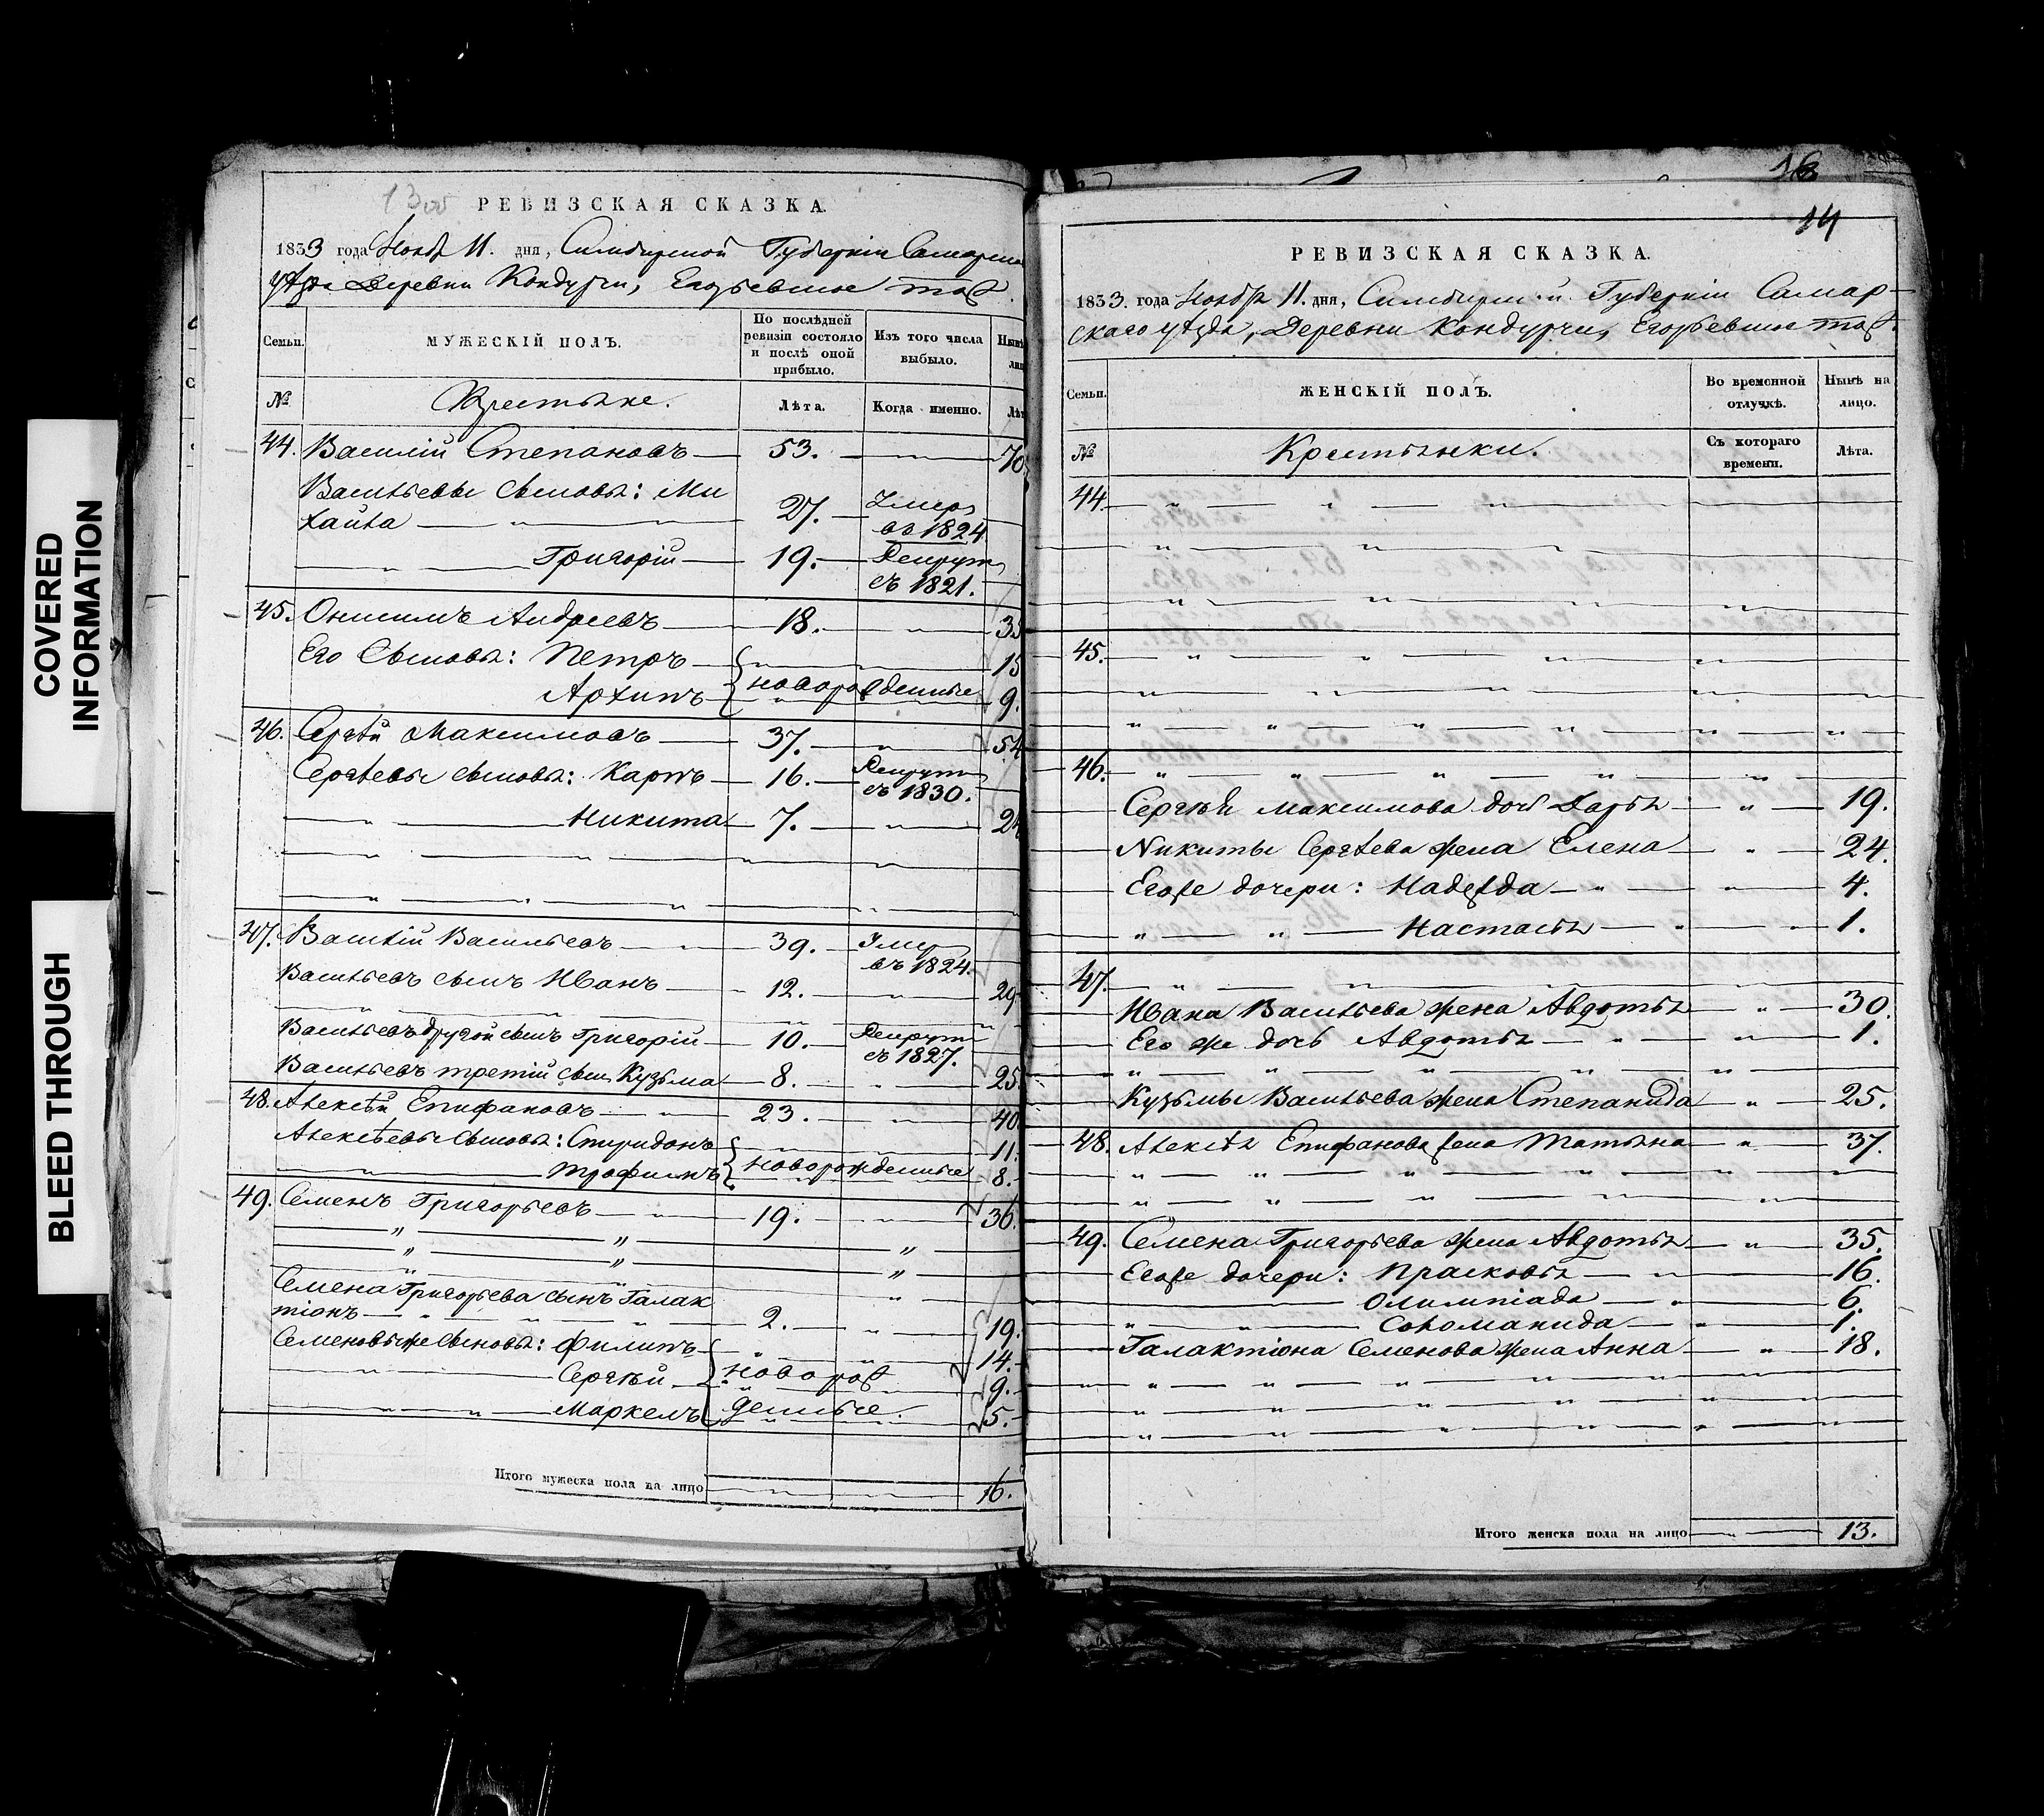 COVERED
INFORMATION
BLEED THROUGH
РЕВИЗСКАЯ СКАЗКА.
1833 года Нояб 11. дня, Симбирской Губерніи Самарска
уѣзда Деревни Кондурчи, Егорьевское тож.
Семьи.
МУЖЕСКІЙ ПОЛЪ.
По послѣдней ревизіи состояло и послѣ оной прибыло.
Изъ того числа выбыло.
№
Крестьяне.
Лѣта.
Когда именно.
44. Василій Степановъ 53. 70
Васильевы сыновья: Ми
хайла 27. Умер въ 1824
Григорій 19. Рекрут съ 1821.
45. Онисимъ Андреевъ 18. 35
Его Сыновья: Петръ 15
Архипъ новорожденные 9.
46. Сергѣй Максимовъ 37. 54
Сергѣевы сыновья: Карпъ 16. Рекрут съ 1830.
Никита 7. 24
47. Василій Васильевъ 39. Умер въ 1824.
Васильевъ сынъ Иванъ 12. 29
Васильевъ другой сынъ Григорій 10. Рекрут съ 1827.
Васильевъ третій сын Кузьма 8. 25.
48. Алексѣй Епифановъ 23. 40
Алексѣевы сыновья: Спиридонъ 11.
Трофимъ новорожденные 8.
49. Семенъ Григорьевъ 19. 36.
Семена Григорьева сынъ Галак
тіонъ 2. 19.
Семеновы же сыновья: Филипъ 14.
Сергѣй новорож 9.
Маркелъ денные. 5.
Итого мужеска пола на лицо 16.
14
РЕВИЗСКАЯ СКАЗКА.
1833. года Нояб 11. дня, Симбирской Губерніи Самар-
скаго уѣзда, Деревни Кондурчи, Егорьевское тож.
Семьи.
ЖЕНСКІЙ ПОЛЪ.
Во временной отлучкѣ.
Нынѣ на лицо.
№
Крестьянки.
Съ котораго времени.
Лѣта.
44.
45.
46.
Сергѣя Максимова дочь Дарья 19.
Никиты Сергѣева жена Елена 24.
Его же дочери: Надежда 4.
Настасья 1.
47.
Ивана Васильева жена Авдотья 30.
Его же дочь Авдотья 1.
Кузьмы Васильева жена Степанида 25.
48. Алексѣя Епифанова жена Татьяна 37.
49. Семена Григорьева жена Авдотья 35.
Его же дочери: Прасковья 16.
Олимпіада 6.
Соломанида 1.
Галактіона Семенова жена Анна 18.
Итого женска пола на лицо 13.